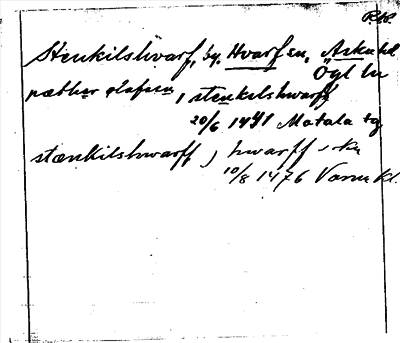 Stenkilshvarf, by, Hvarf sn, Aska hd
Ögl ln
pæther olafsen, i stenkilshwarff
20/6 1471 Motala tg
stænkilshwarff, hwarff s kn
10/8 1476 Varnu kl.